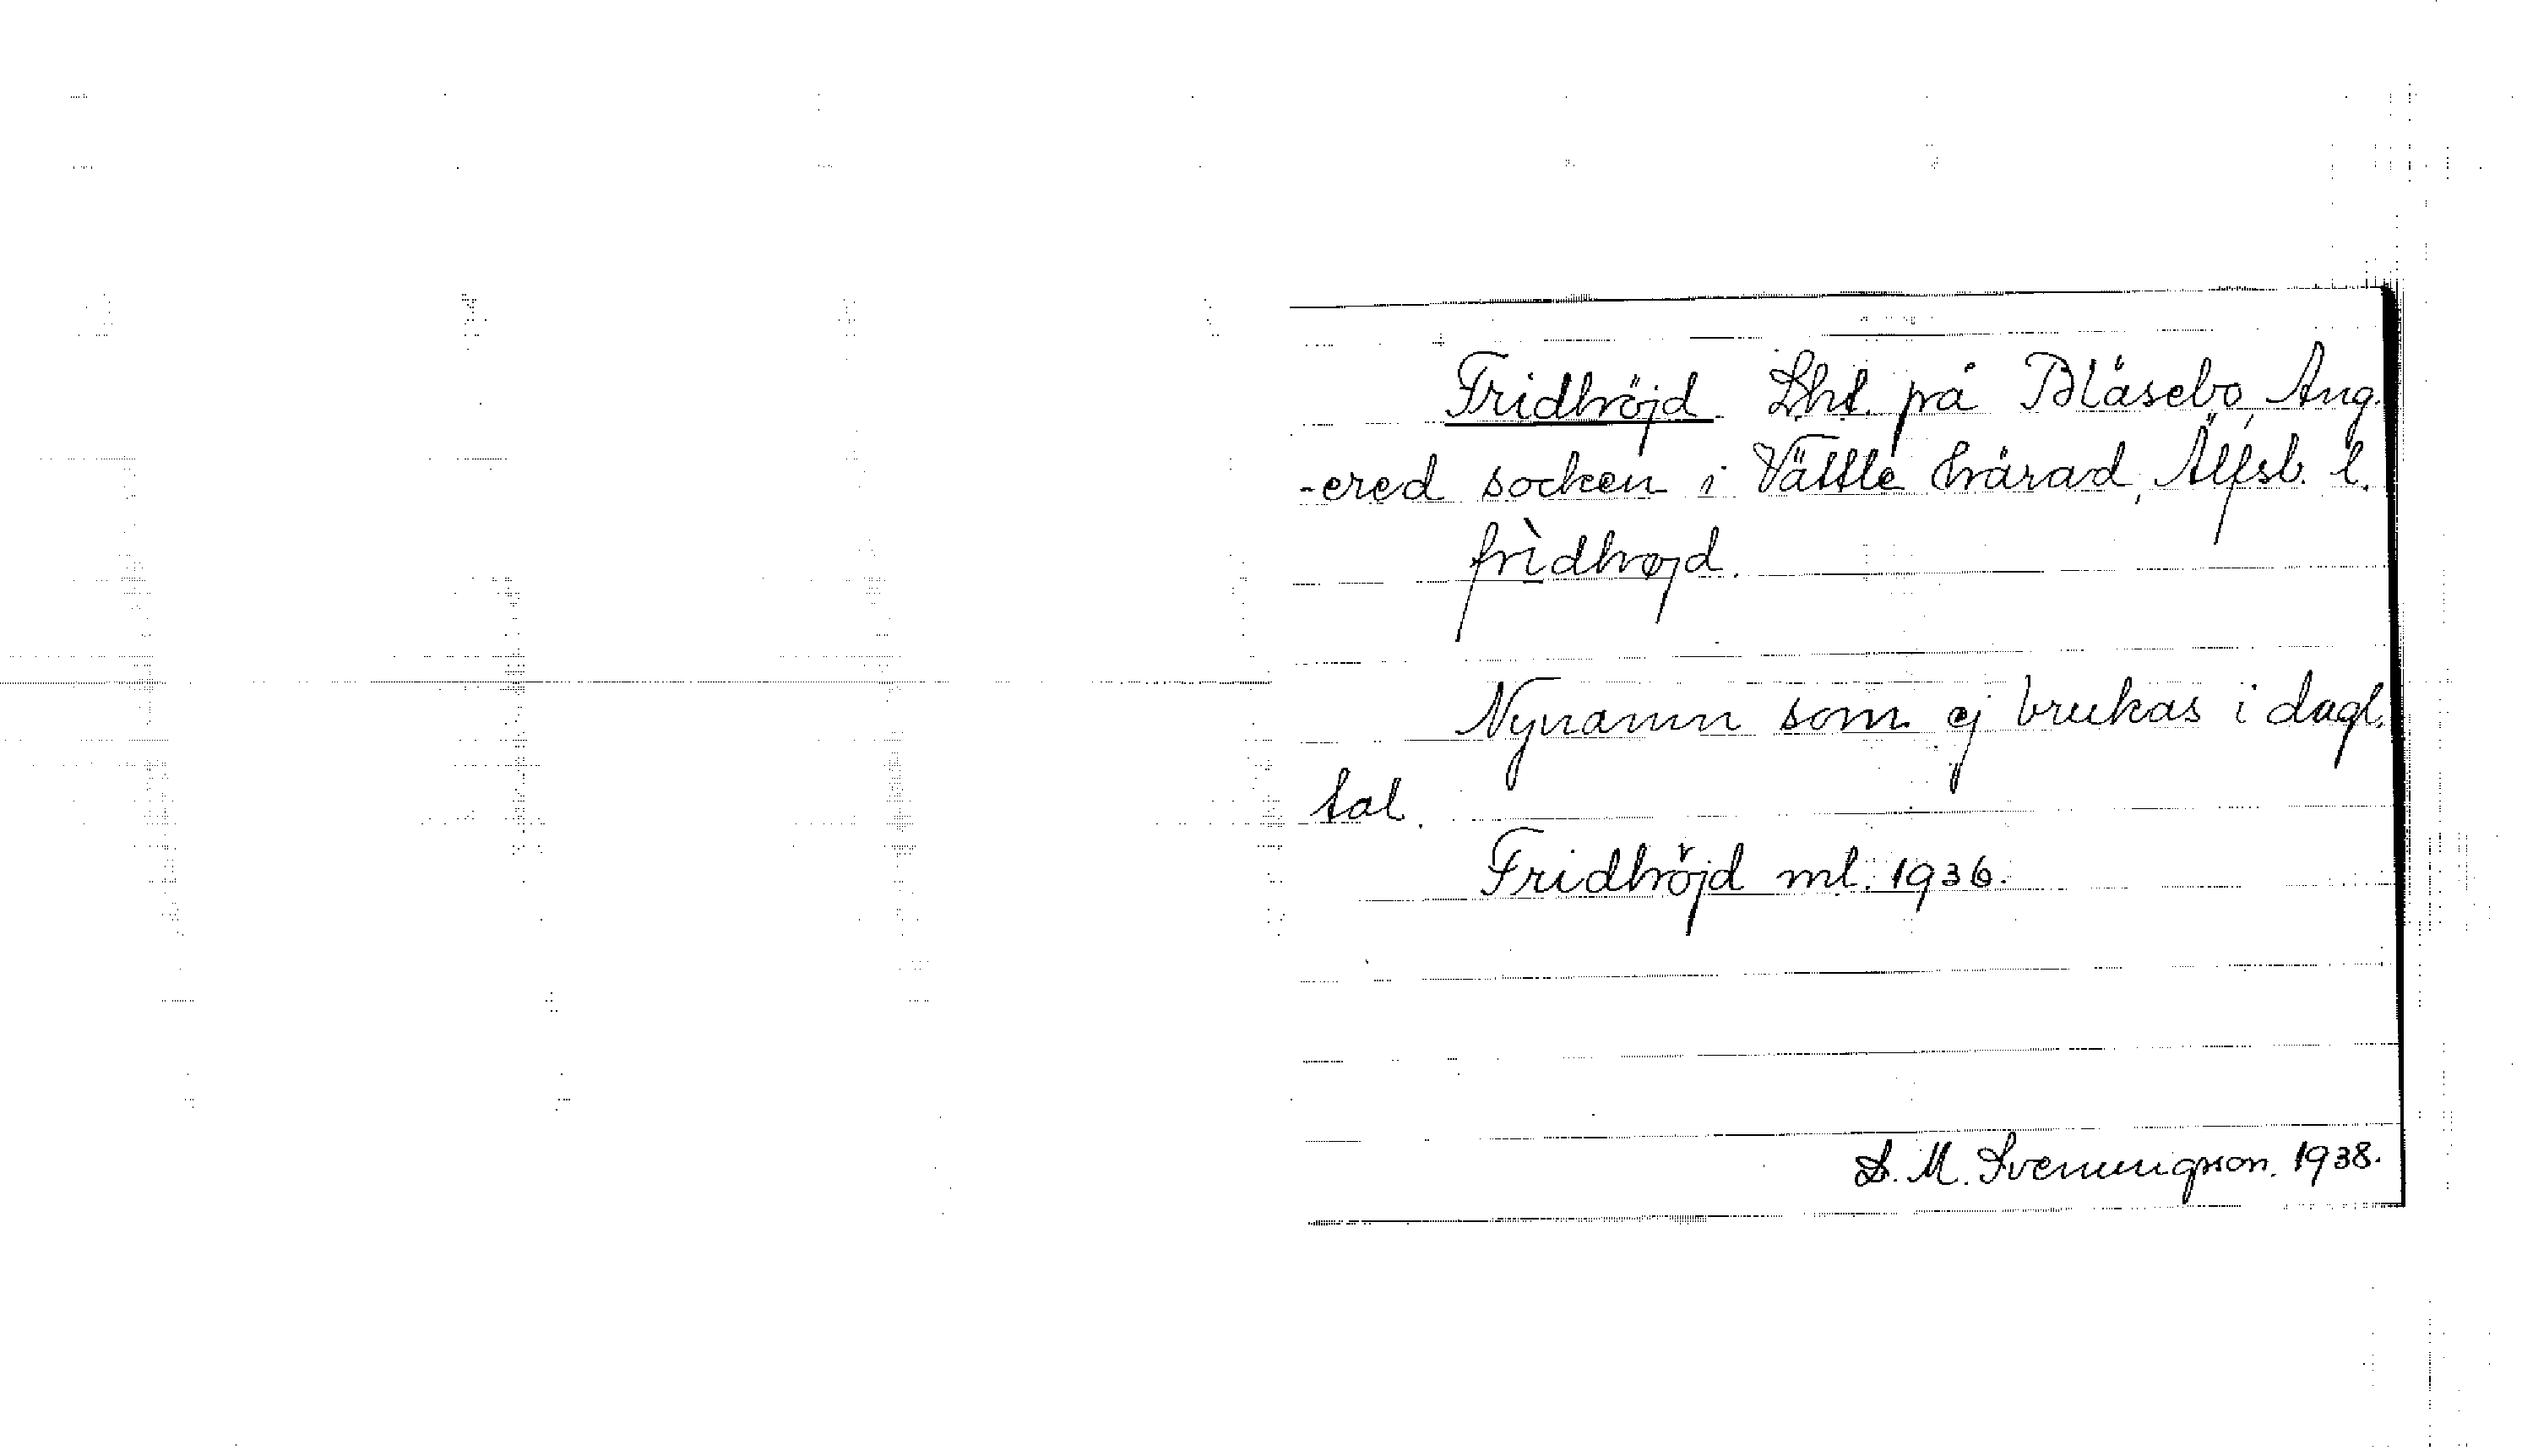 Fridhöjd. Lht. på Blåsebo, Ang.
-ered socken i Vättle härad, Älfsb. l.
frìdhøjd.
Nynamn som ej brukas i dagl.
tal.
Fridhöjd ml. 1936.
S. M. Svenungsson. 1938.